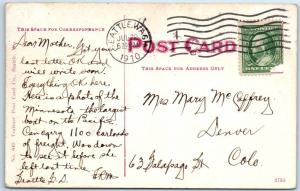 THIS SPACE FOR CORRESPONDENCE
SEATTLE, WASH.
JUL
1910
POST CARD
THIS SPACE FOR ADDRESS ONLY
Dear Mother, Got your
last letter OK and
will write soon.
Everything OK here.
Here is a photo of the
Minnesota the largest
boat on the Pacific
Can carry 1100 carloads
of freight. Was down
to see it before she
left last time.
Seattle
Miss Mary McCaffrey
Denver
63 Galapago St
Colo.